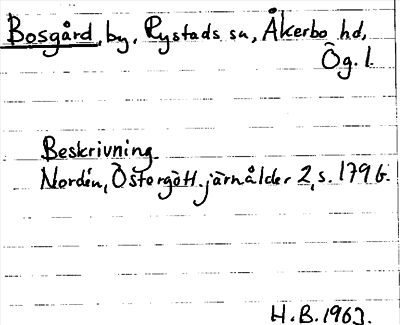 Bosgård, by, Rystads sn, Åkerbo hd,
Ög. l.
Beskrivning.
Nordén, Östergötl. järnålder 2, s. 179 f.
H. B. 1963.